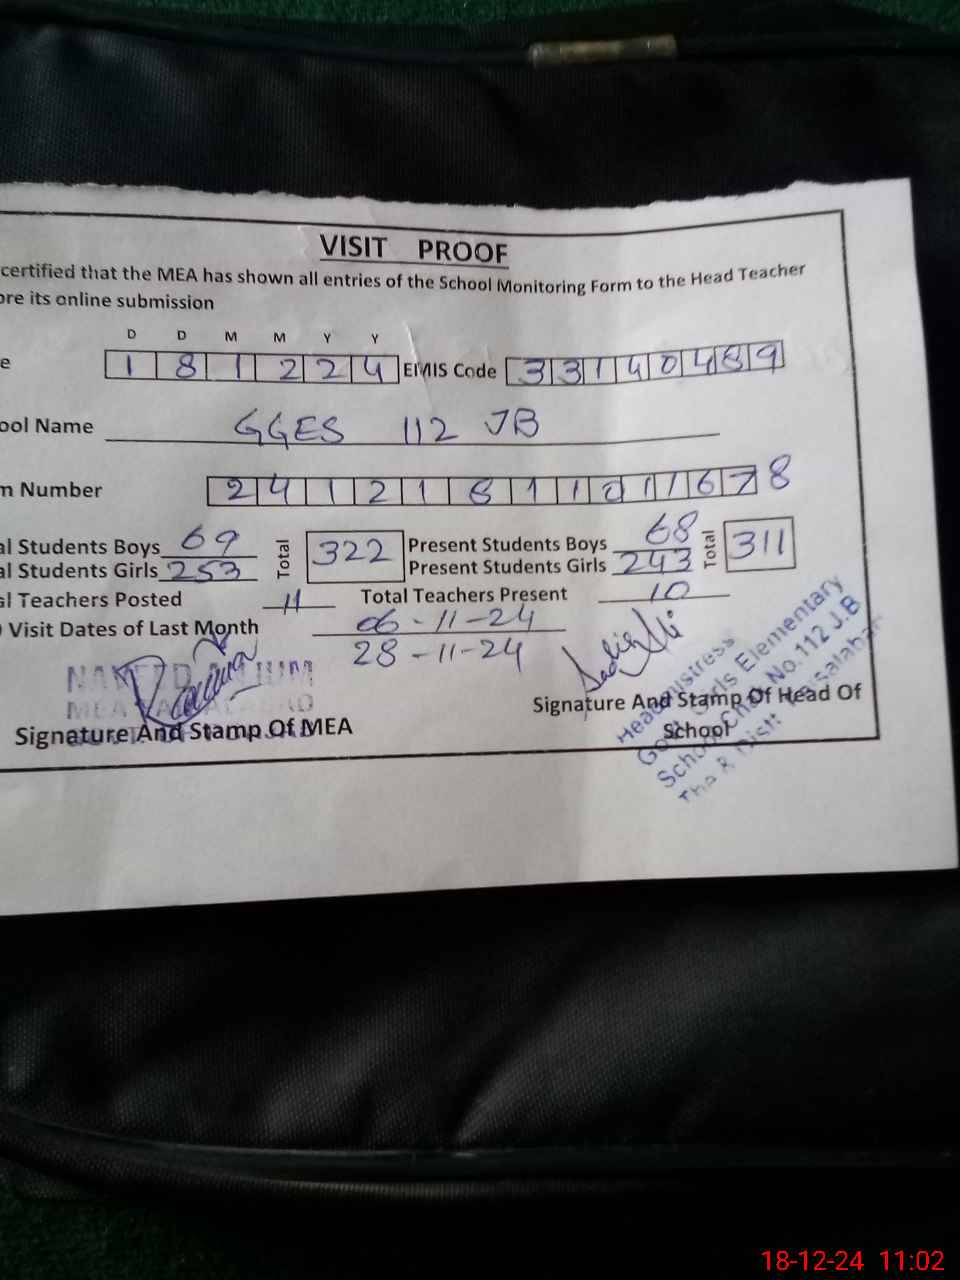 VISIT PROOF
certified that the MEA has shown all entries of the School Monitoring Form to the Head Teacher
ore its online submission
D D M M Y Y
e 1 8 1 2 2 4 EMIS Code 3 3 1 4 0 4 8 9
ool Name GGES 112 JB
m Number 2 4 1 2 1 8 1 1 0 1 1 6 7 8
al Students Boys 69 Total 322 Present Students Boys 68 Total 311
al Students Girls 253 Present Students Girls 243
al Teachers Posted 11 Total Teachers Present 10
Visit Dates of Last Month 06-11-24
28-11-24
Signature And Stamp Of MEA
Signature And Stamp Of Head Of
School
Headmistress
Govt. Girls Elementary
School Chak No.112 J.B
The & Distt: Faisalabad
18-12-24 11:02